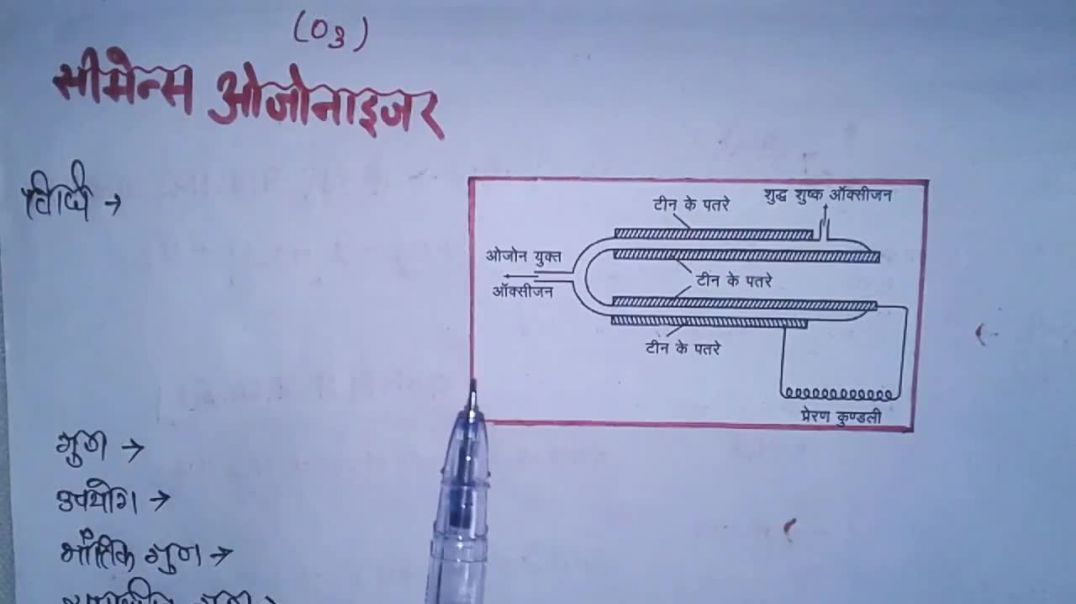 (O3)
सीमेन्स ओजोनाइजर
विधि →
टीन के पतरे
शुद्ध शुष्क ऑक्सीजन
ओजोन युक्त
ऑक्सीजन
टीन के पतरे
टीन के पतरे
प्रेरण कुण्डली
गुण →
उपयोग →
भौतिक गुण →